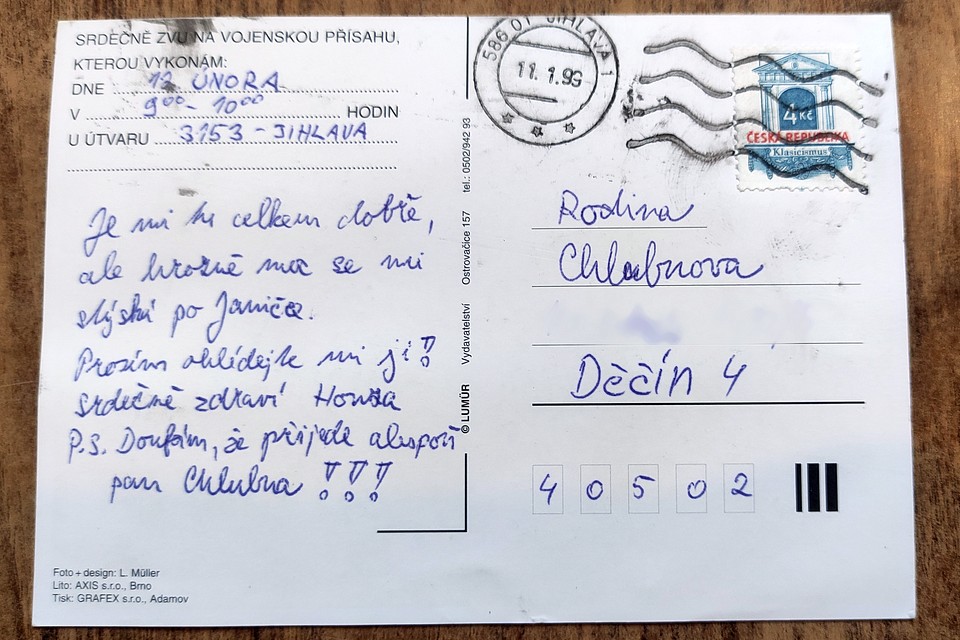 SRDEČNĚ ZVU NA VOJENSKOU PŘÍSAHU,
KTEROU VYKONÁM:
DNE 12 ÚNORA
V 9⁰⁰- 10⁰⁰ HODIN
U ÚTVARU 3153 - JIHLAVA
Je mi tu celkem dobře,
ale hrozně moc se mi
stýská po Janičce.
Prosím ohlídejte mi ji!!
srdečně zdraví Honza
P.S. Doufám, že přijede alespoň
pan Chlubna !!!
Foto + design: L. Müller
Lito: AXIS s.r.o., Brno
Tisk: GRAFEX s.r.o., Adamov
© LUMŮR Vydavatelství Ostrovačice 157 tel.: 0502/942 93
586 01 JIHLAVA 1
11.1.99
4 Kč
ČESKÁ REPUBLIKA
Klasicismus
Rodina
Chlubnova
Děčín 4
40502